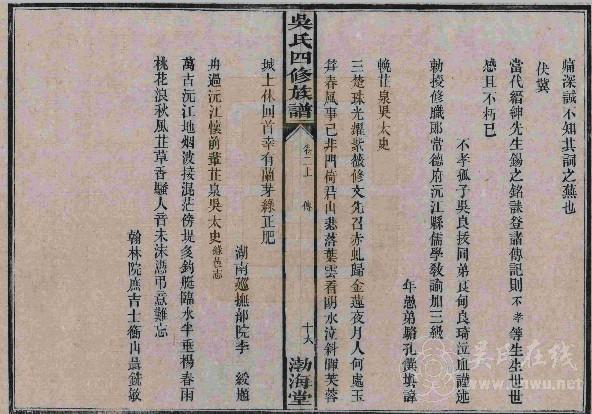 痛深誠不知其詞之蕪也
伏冀
當代縉紳先生錫之銘誄登諸傳記則不孝等生生世世
感且不朽已
不孝孤子吳良拔同弟良甸良琦泣血謹述
勅授修職郎常德府沅江縣儒學教諭加三級
年愚弟駱孔僎填諱
輓芷泉吳太史
三楚珠光燿紫薇修文先召赤虬歸金蓮夜月人何處玉
聲春風事已非門倚君山悲落葉雲看朗水泣斜暉芙蓉
吳氏四修族譜
卷二上
傳
十六
渤海堂
城上休回首幸有蘭芽綠正肥
湖南巡撫部院李
題
舟過沅江懷前輩芷泉吳太史
錄邑志
萬古沅江地烟波接混茫傍堤多釣艇臨水半垂楊春雨
桃花浪秋風芷草香騷人音未沫憑弔意難忘
翰林院庶吉士衡山聶銑敏
吳氏在线